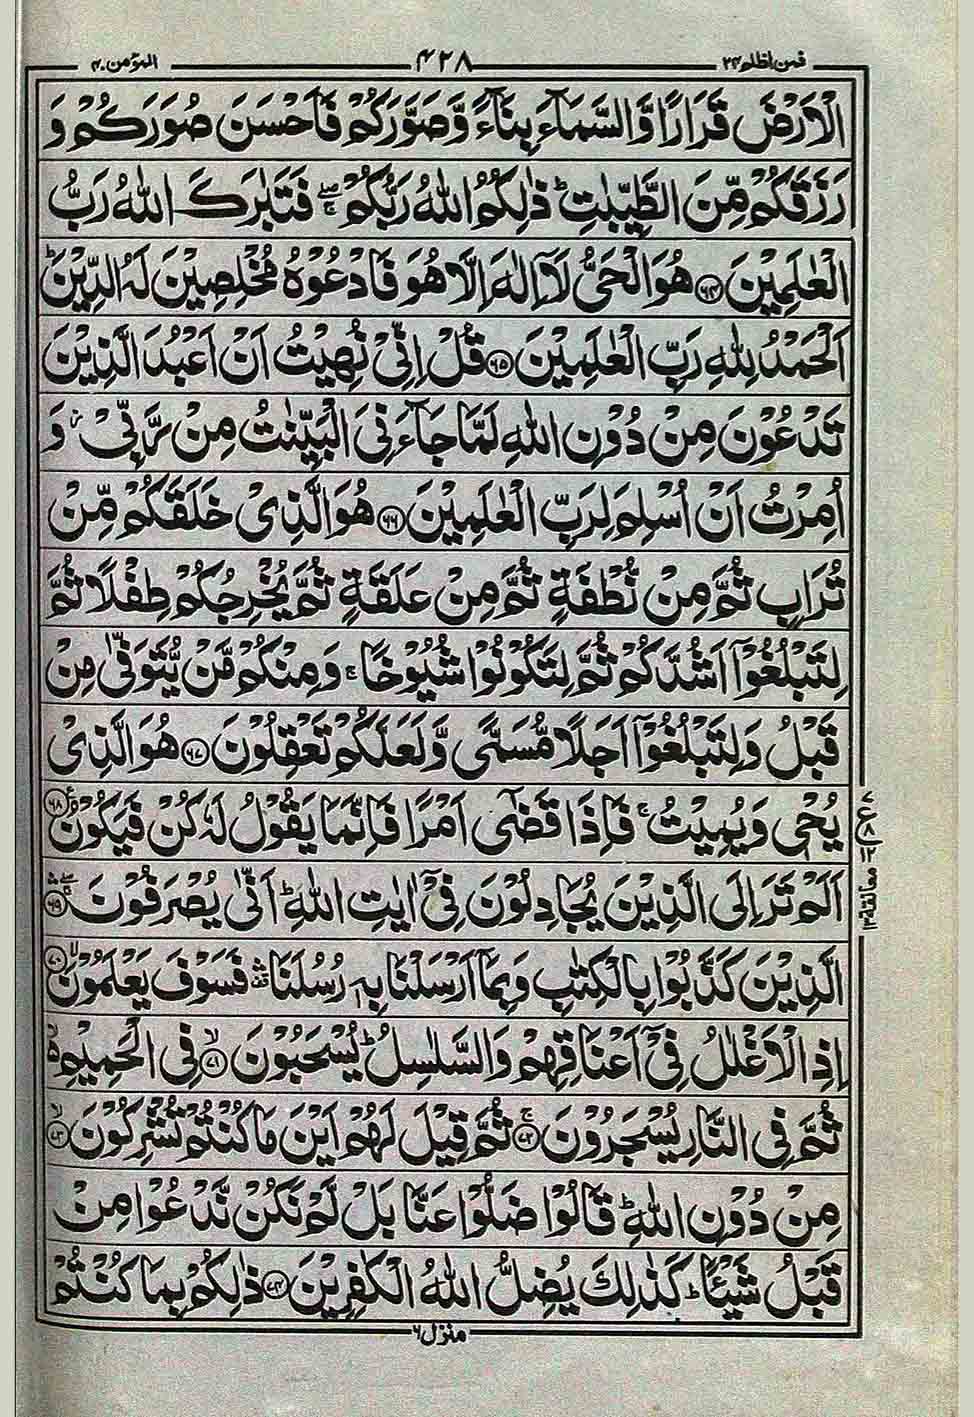 فمن اظلم ۲۴ ۴۲۸ المؤمن ۴۰
الْاَرْضَ قَرَارًا وَّالسَّمَآءَ بِنَآءً وَّصَوَّرَكُمْ فَاَحْسَنَ صُوَرَكُمْ وَ
رَزَقَكُمْ مِّنَ الطَّيِّبٰتِ ؕ ذٰلِكُمُ اللّٰهُ رَبُّكُمْ ۖۚ فَتَبٰرَكَ اللّٰهُ رَبُّ
الْعٰلَمِيْنَ ﴿۶۴﴾ هُوَ الْحَىُّ لَاۤ اِلٰهَ اِلَّا هُوَ فَادْعُوْهُ مُخْلِصِيْنَ لَهُ الدِّيْنَ ؕ
اَلْحَمْدُ لِلّٰهِ رَبِّ الْعٰلَمِيْنَ ﴿۶۵﴾ قُلْ اِنِّىْ نُهِيْتُ اَنْ اَعْبُدَ الَّذِيْنَ
تَدْعُوْنَ مِنْ دُوْنِ اللّٰهِ لَمَّا جَآءَنِىَ الْبَيِّنٰتُ مِنْ رَّبِّىْ ؗ وَ
اُمِرْتُ اَنْ اُسْلِمَ لِرَبِّ الْعٰلَمِيْنَ ﴿۶۶﴾ هُوَ الَّذِىْ خَلَقَكُمْ مِّنْ
تُرَابٍ ثُمَّ مِنْ نُّطْفَةٍ ثُمَّ مِنْ عَلَقَةٍ ثُمَّ يُخْرِجُكُمْ طِفْلًا ثُمَّ
لِتَبْلُغُوْۤا اَشُدَّكُمْ ثُمَّ لِتَكُوْنُوْا شُيُوْخًا ۚ وَمِنْكُمْ مَّنْ يُّتَوَفّٰى مِنْ
قَبْلُ وَلِتَبْلُغُوْۤا اَجَلًا مُّسَمًّى وَّلَعَلَّكُمْ تَعْقِلُوْنَ ﴿۶۷﴾ هُوَ الَّذِىْ
يُحْىٖ وَيُمِيْتُ ۚ فَاِذَا قَضٰٓى اَمْرًا فَاِنَّمَا يَقُوْلُ لَهٗ كُنْ فَيَكُوْنُ ﴿۶۸﴾
اَلَمْ تَرَ اِلَى الَّذِيْنَ يُجَادِلُوْنَ فِىْۤ اٰيٰتِ اللّٰهِ ؕ اَنّٰى يُصْرَفُوْنَ ﴿۶۹﴾
الَّذِيْنَ كَذَّبُوْا بِالْكِتٰبِ وَبِمَاۤ اَرْسَلْنَا بِهٖ رُسُلَنَا ۛ فَسَوْفَ يَعْلَمُوْنَ ﴿۷۰﴾
اِذِ الْاَغْلٰلُ فِىْۤ اَعْنَاقِهِمْ وَالسَّلٰسِلُ ؕ يُسْحَبُوْنَ ﴿۷۱﴾ فِى الْحَمِيْمِ
ثُمَّ فِى النَّارِ يُسْجَرُوْنَ ﴿۷۲﴾ ثُمَّ قِيْلَ لَهُمْ اَيْنَ مَا كُنْتُمْ تُشْرِكُوْنَ ﴿۷۳﴾
مِنْ دُوْنِ اللّٰهِ ؕ قَالُوْا ضَلُّوْا عَنَّا بَلْ لَّمْ نَكُنْ نَّدْعُوْا مِنْ
قَبْلُ شَيْئًا ؕ كَذٰلِكَ يُضِلُّ اللّٰهُ الْكٰفِرِيْنَ ﴿۷۴﴾ ذٰلِكُمْ بِمَا كُنْتُمْ
منزل ۶